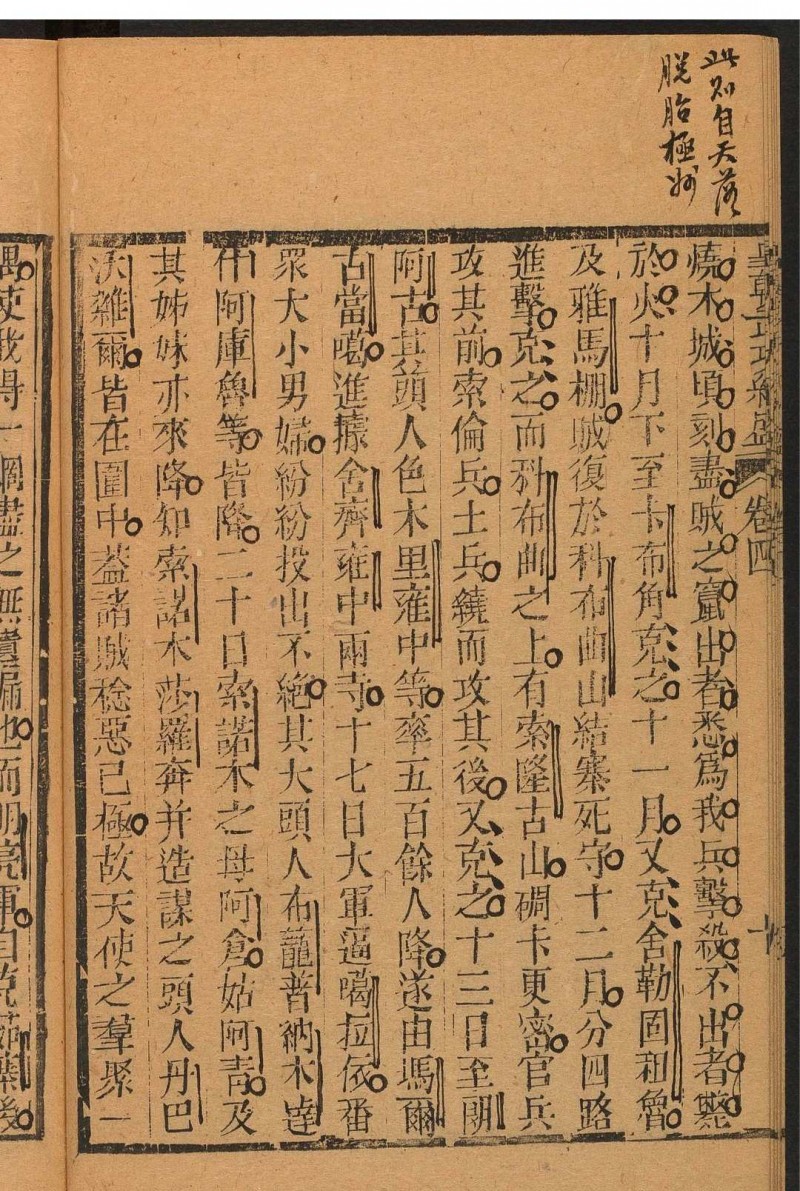 此則自天落
脫胎極妙
皇朝武功紀盛 卷四
燒木城頃刻盡賊之竄出者悉爲我兵擊殺不出者斃
於火十月下至卡布角克之十一月又克舍勒固租魯
及雅馬棚賊復於科布曲山結寨死守十二月分四路
進擊克之而科布曲之上有索隆古山碉卡更密官兵
攻其前索倫兵土兵繞而攻其後又克之十三日至朗
阿古其頭人色木里雍中等率五百餘人降遂由瑪爾
古當噶進據舍齊雍中兩寺十七日大軍逼噶拉依番
衆大小男婦紛紛投出不絕其大頭人布籠普納木達
什阿庫魯等皆降二十日索諾木之母阿倉姑阿青及
其姊妹亦來降知索諾木莎羅奔并造謀之頭人丹巴
沃雜爾皆在圍中蓋諸賊稔惡已極故天使之羣聚一
使我得一網盡之無遺漏也而明亮軍自克後